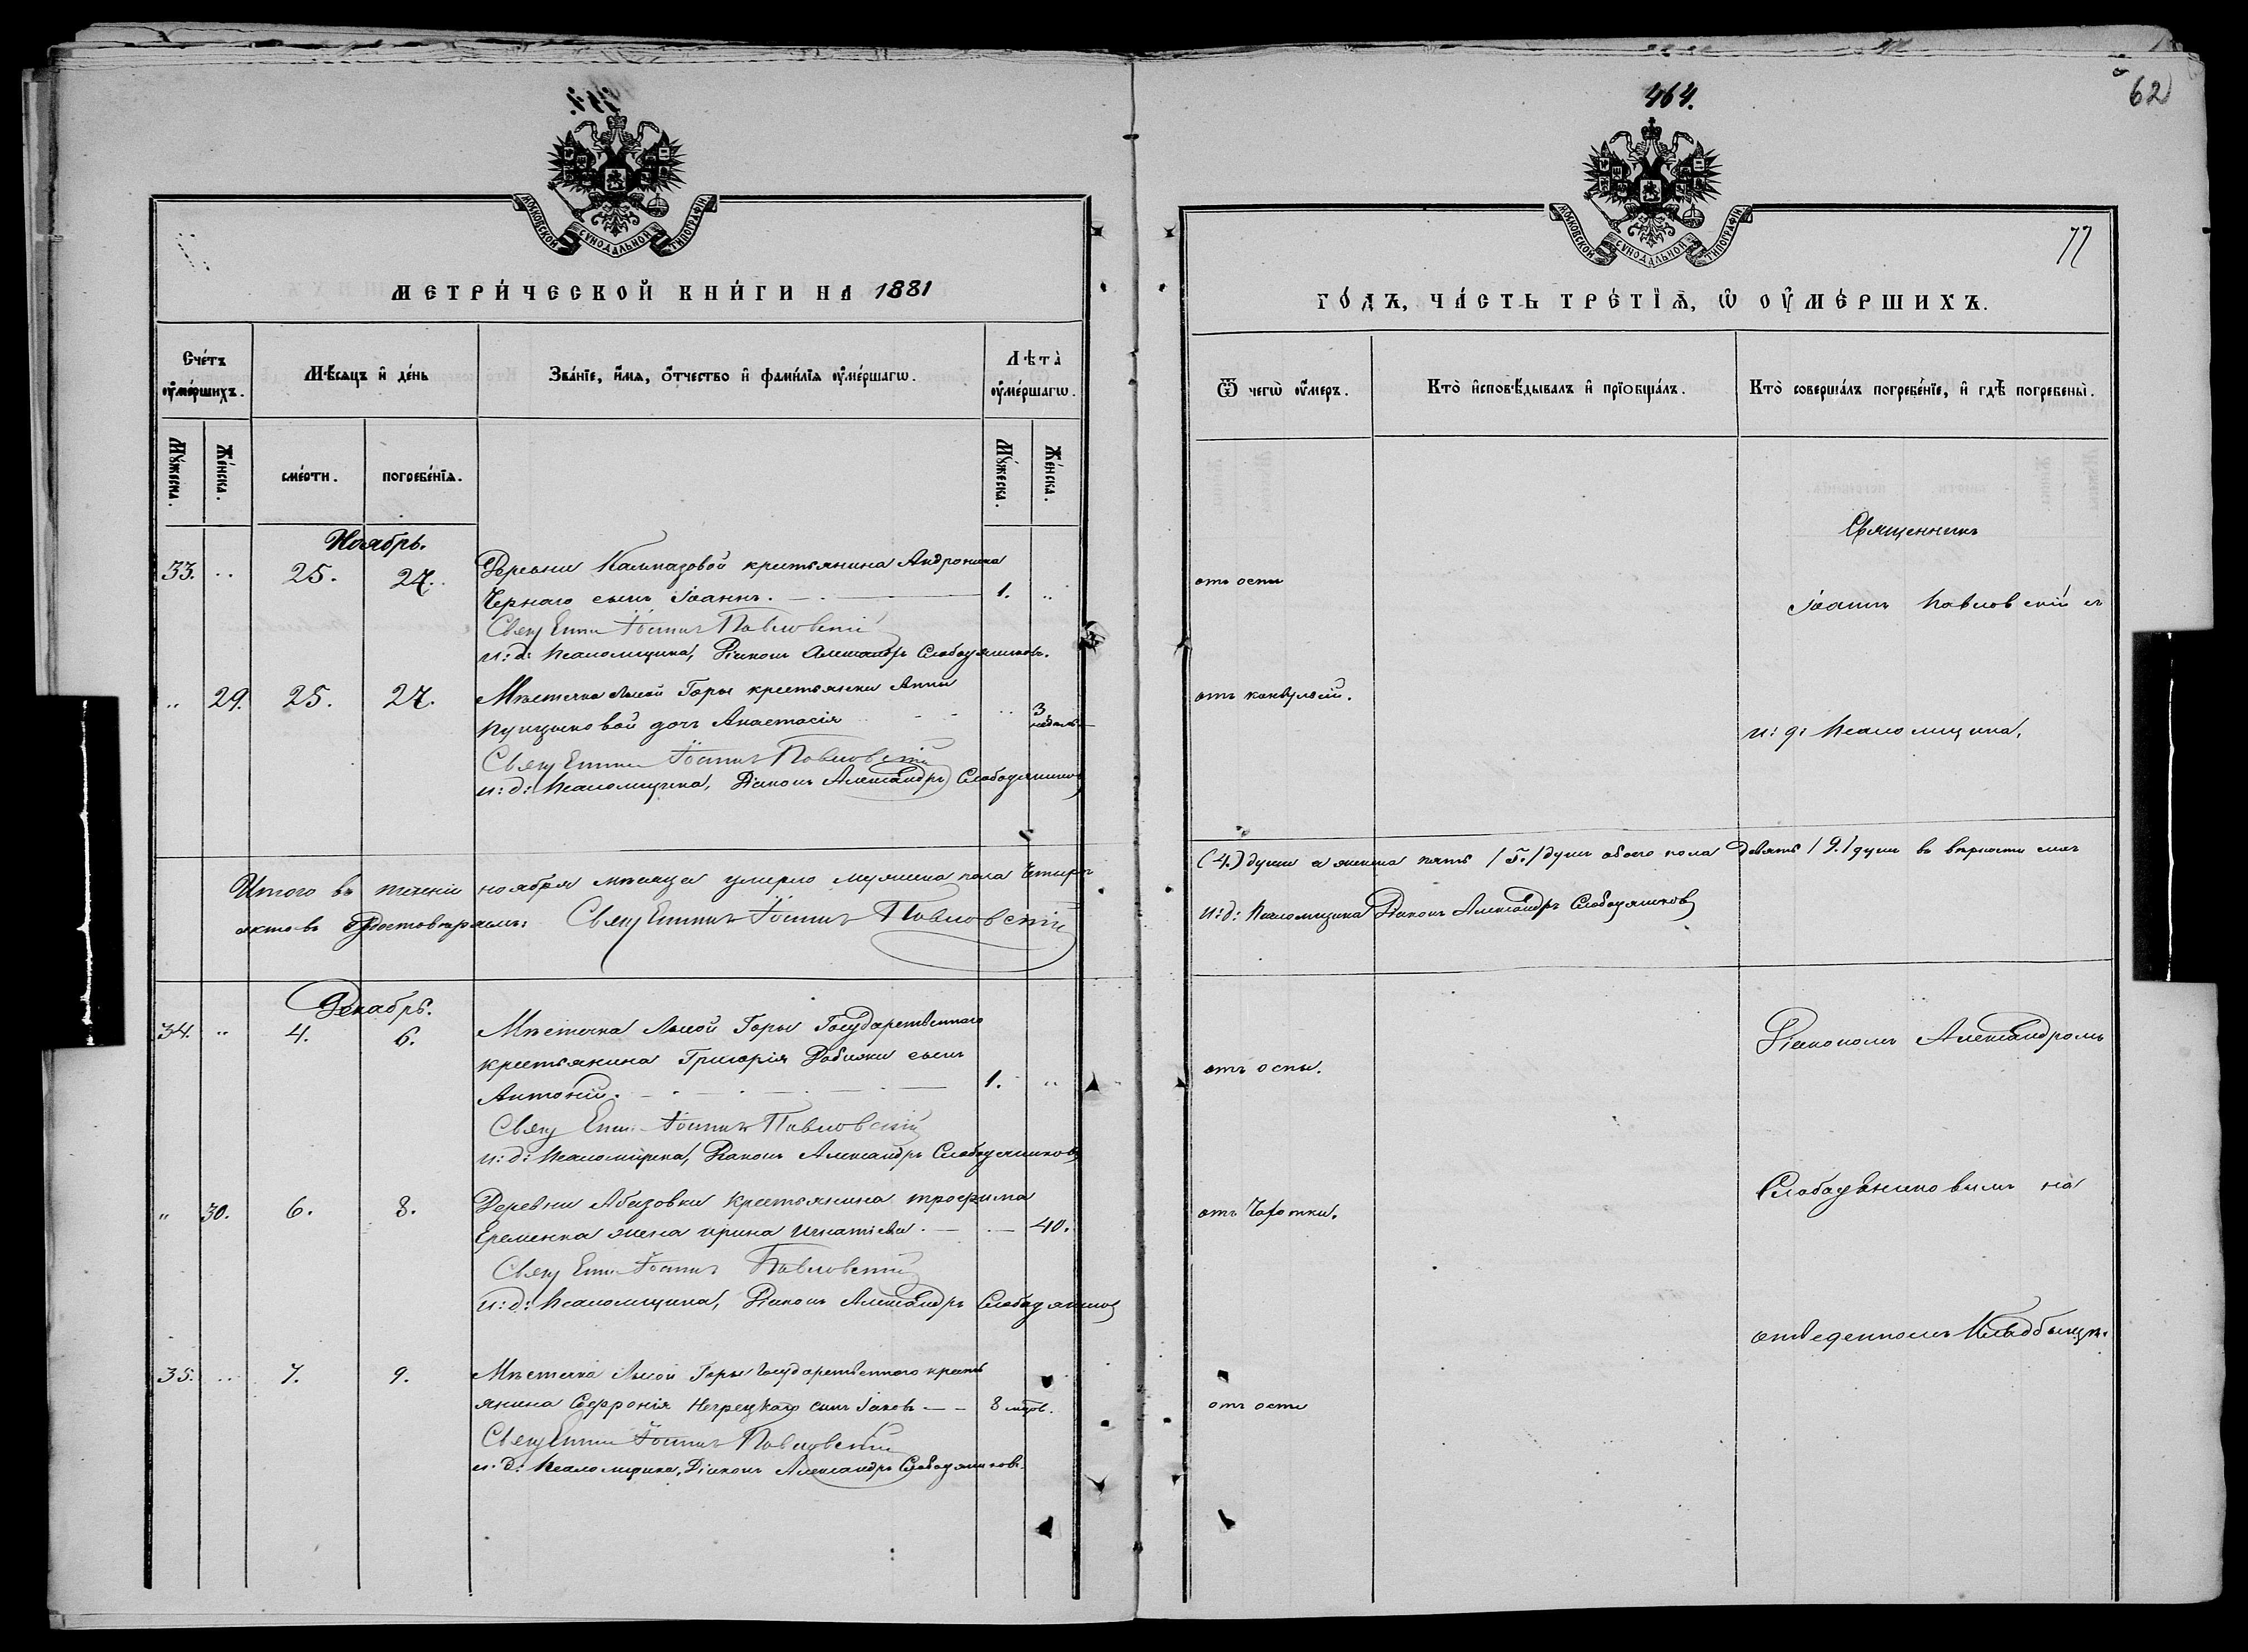 464.
62
77
МОСКОВСКОЙ СѴНОДАЛЬНОЙ ТИПОГРАФІИ
МОСКОВСКОЙ СѴНОДАЛЬНОЙ ТИПОГРАФІИ
МЕТРИ́ЧЕСКОЙ КНИ́ГИ НА 1881
ГО́ДЪ, ЧА́СТЬ ТРЕ́ТІѦ, Ѡ ОУМЕ́РШИХЪ.
Счетъ оумершихъ.
Мѣсяцъ и день
Званіе, имя, отчество и фамилія оумершагѡ.
Лѣта оумершагѡ.
Ѿ чегѡ оумеръ.
Кто исповѣдывалъ и пріобщалъ.
Кто совершалъ погребеніе, и гдѣ погребены.
Мужеска.
Женска.
смерти.
погребенія.
Мужеска.
Женска.
Ноябрь.
33. .. 25. 27. Деревни Калмазовой крестьянина Андроника
Чернаго сынъ Іоаннъ. 1. .. отъ оспы
Священникъ Іоаннъ Павловскій
и: д: Псаломщика, Діаконъ Александръ Слободяниковъ.
.. 29. 25. 27. Мѣстечка Лысой Горы крестьянки Анны
Пущиковой дочь Анастасія .. 3 недѣль отъ конвульсій.
Священникъ Іоаннъ Павловскій
и: д: Псаломщика, Діаконъ Александръ Слободяниковъ
Священникъ
Іоаннъ Павловскій съ
и: д: Псаломщика,
Итого въ теченіи ноября мѣсяца умерло мужеска пола четыре (4.) души а женска пять /5./ душъ обоего пола девять /9./ душъ въ вѣрности сихъ
актовъ удостовѣряемъ: Священникъ Іоаннъ Павловскій и: д: Псаломщика Діаконъ Александръ Слободяниковъ
Декабрь.
34. .. 4. 6. Мѣстечка Лысой Горы Государственнаго
крестьянина Григорія Бабияки сынъ
Антоній. 1. .. отъ оспы.
Священникъ Іоаннъ Павловскій
и: д: Псаломщика, Діаконъ Александръ Слободяниковъ
.. 30. 6. 8. Деревни Абазовки Крестьянина трофима
Еременка жена ирина игнатіева. 40. отъ Чахотки.
Священникъ Іоаннъ Павловскій
и: д: Псаломщика, Діаконъ Александръ Слободяниковъ
35. .. 7. 9. Мѣстечка Лысой Горы Государственнаго кресть
янина Софронія Негрецкаго сынъ Іаковъ 8 мцов. отъ оспы
Священникъ Іоаннъ Павловскій
и: д: Псаломщика, Діаконъ Александръ Слободяниковъ.
Діакономъ Александромъ
Слободяниковымъ на
отведенномъ Кладбищѣ.